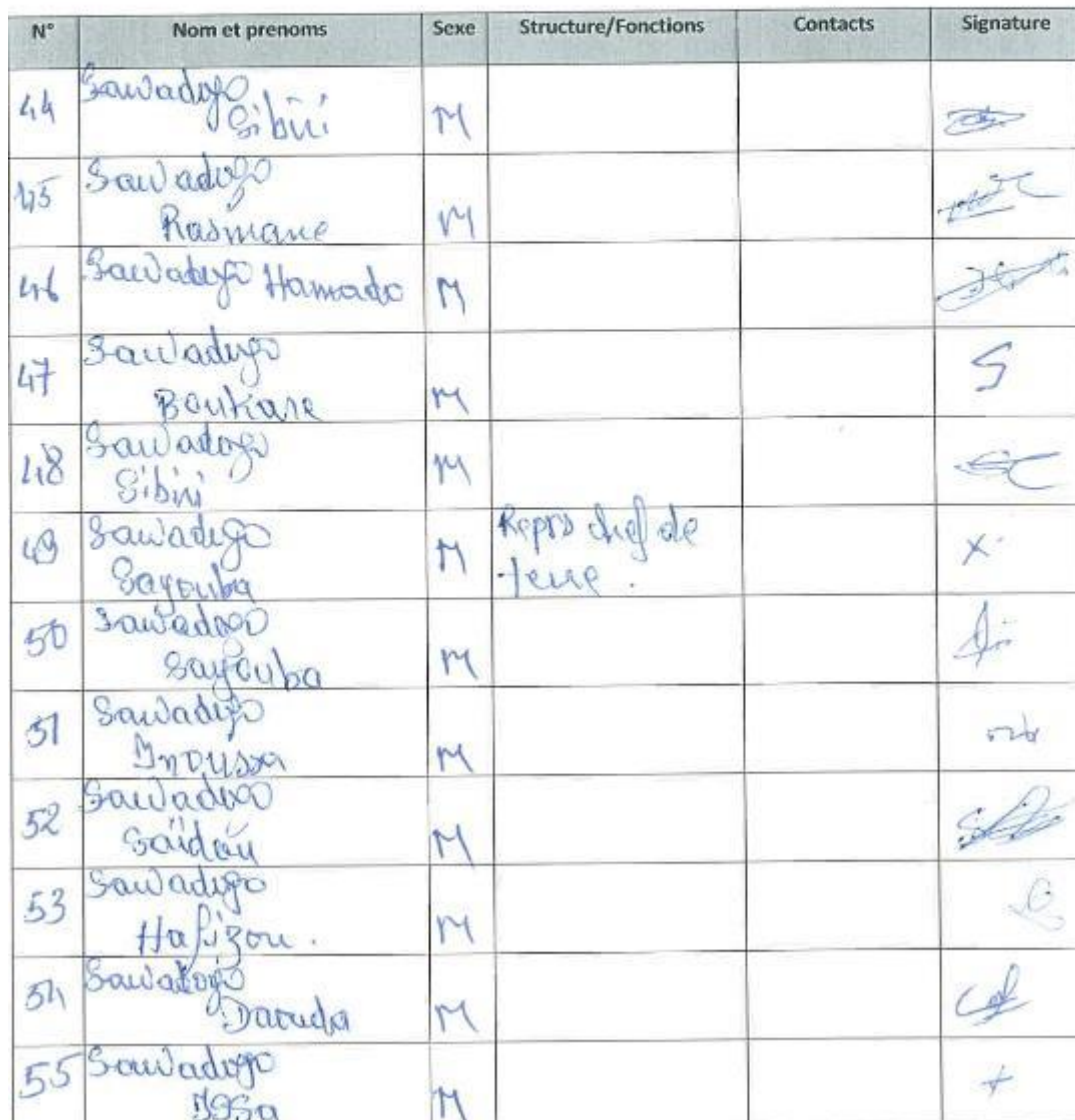 N° Nom et prenoms Sexe Structure/Fonctions Contacts Signature
44 Sawadogo
Sibiri M
45 Sawadogo
Rasmane M
46 Sawadogo Hamado M
47 Sawadogo
Boukare M
48 Sawadogo
Sibiri M
49 Sawadogo M Reprs chef de
Sayouba terre . X
50 Sawadogo
Sayouba M
51 Sawadogo
Inoussa M
52 Sawadogo
Saïdou M
53 Sawadogo
Hafizou . M
54 Sawadogo
Daouda M
55 Sawadogo +
Issa M